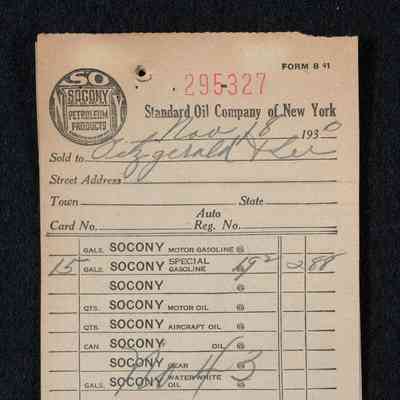 FORM 8 41
SO
SOCONY
PETROLEUM
PRODUCTS
NY
295327
Standard Oil Company of New York
Nov 18 1930
Sold to Fitzgerald & Lee
Street Address
Town State
Auto
Card No. Reg. No.
GALS. SOCONY MOTOR GASOLINE @
15 GALS. SOCONY SPECIAL GASOLINE @ 19² 2 88
SOCONY @
QTS. SOCONY MOTOR OIL @
QTS. SOCONY AIRCRAFT OIL @
CAN SOCONY OIL @
SOCONY GEAR @
GALS. SOCONY WATER WHITE OIL @